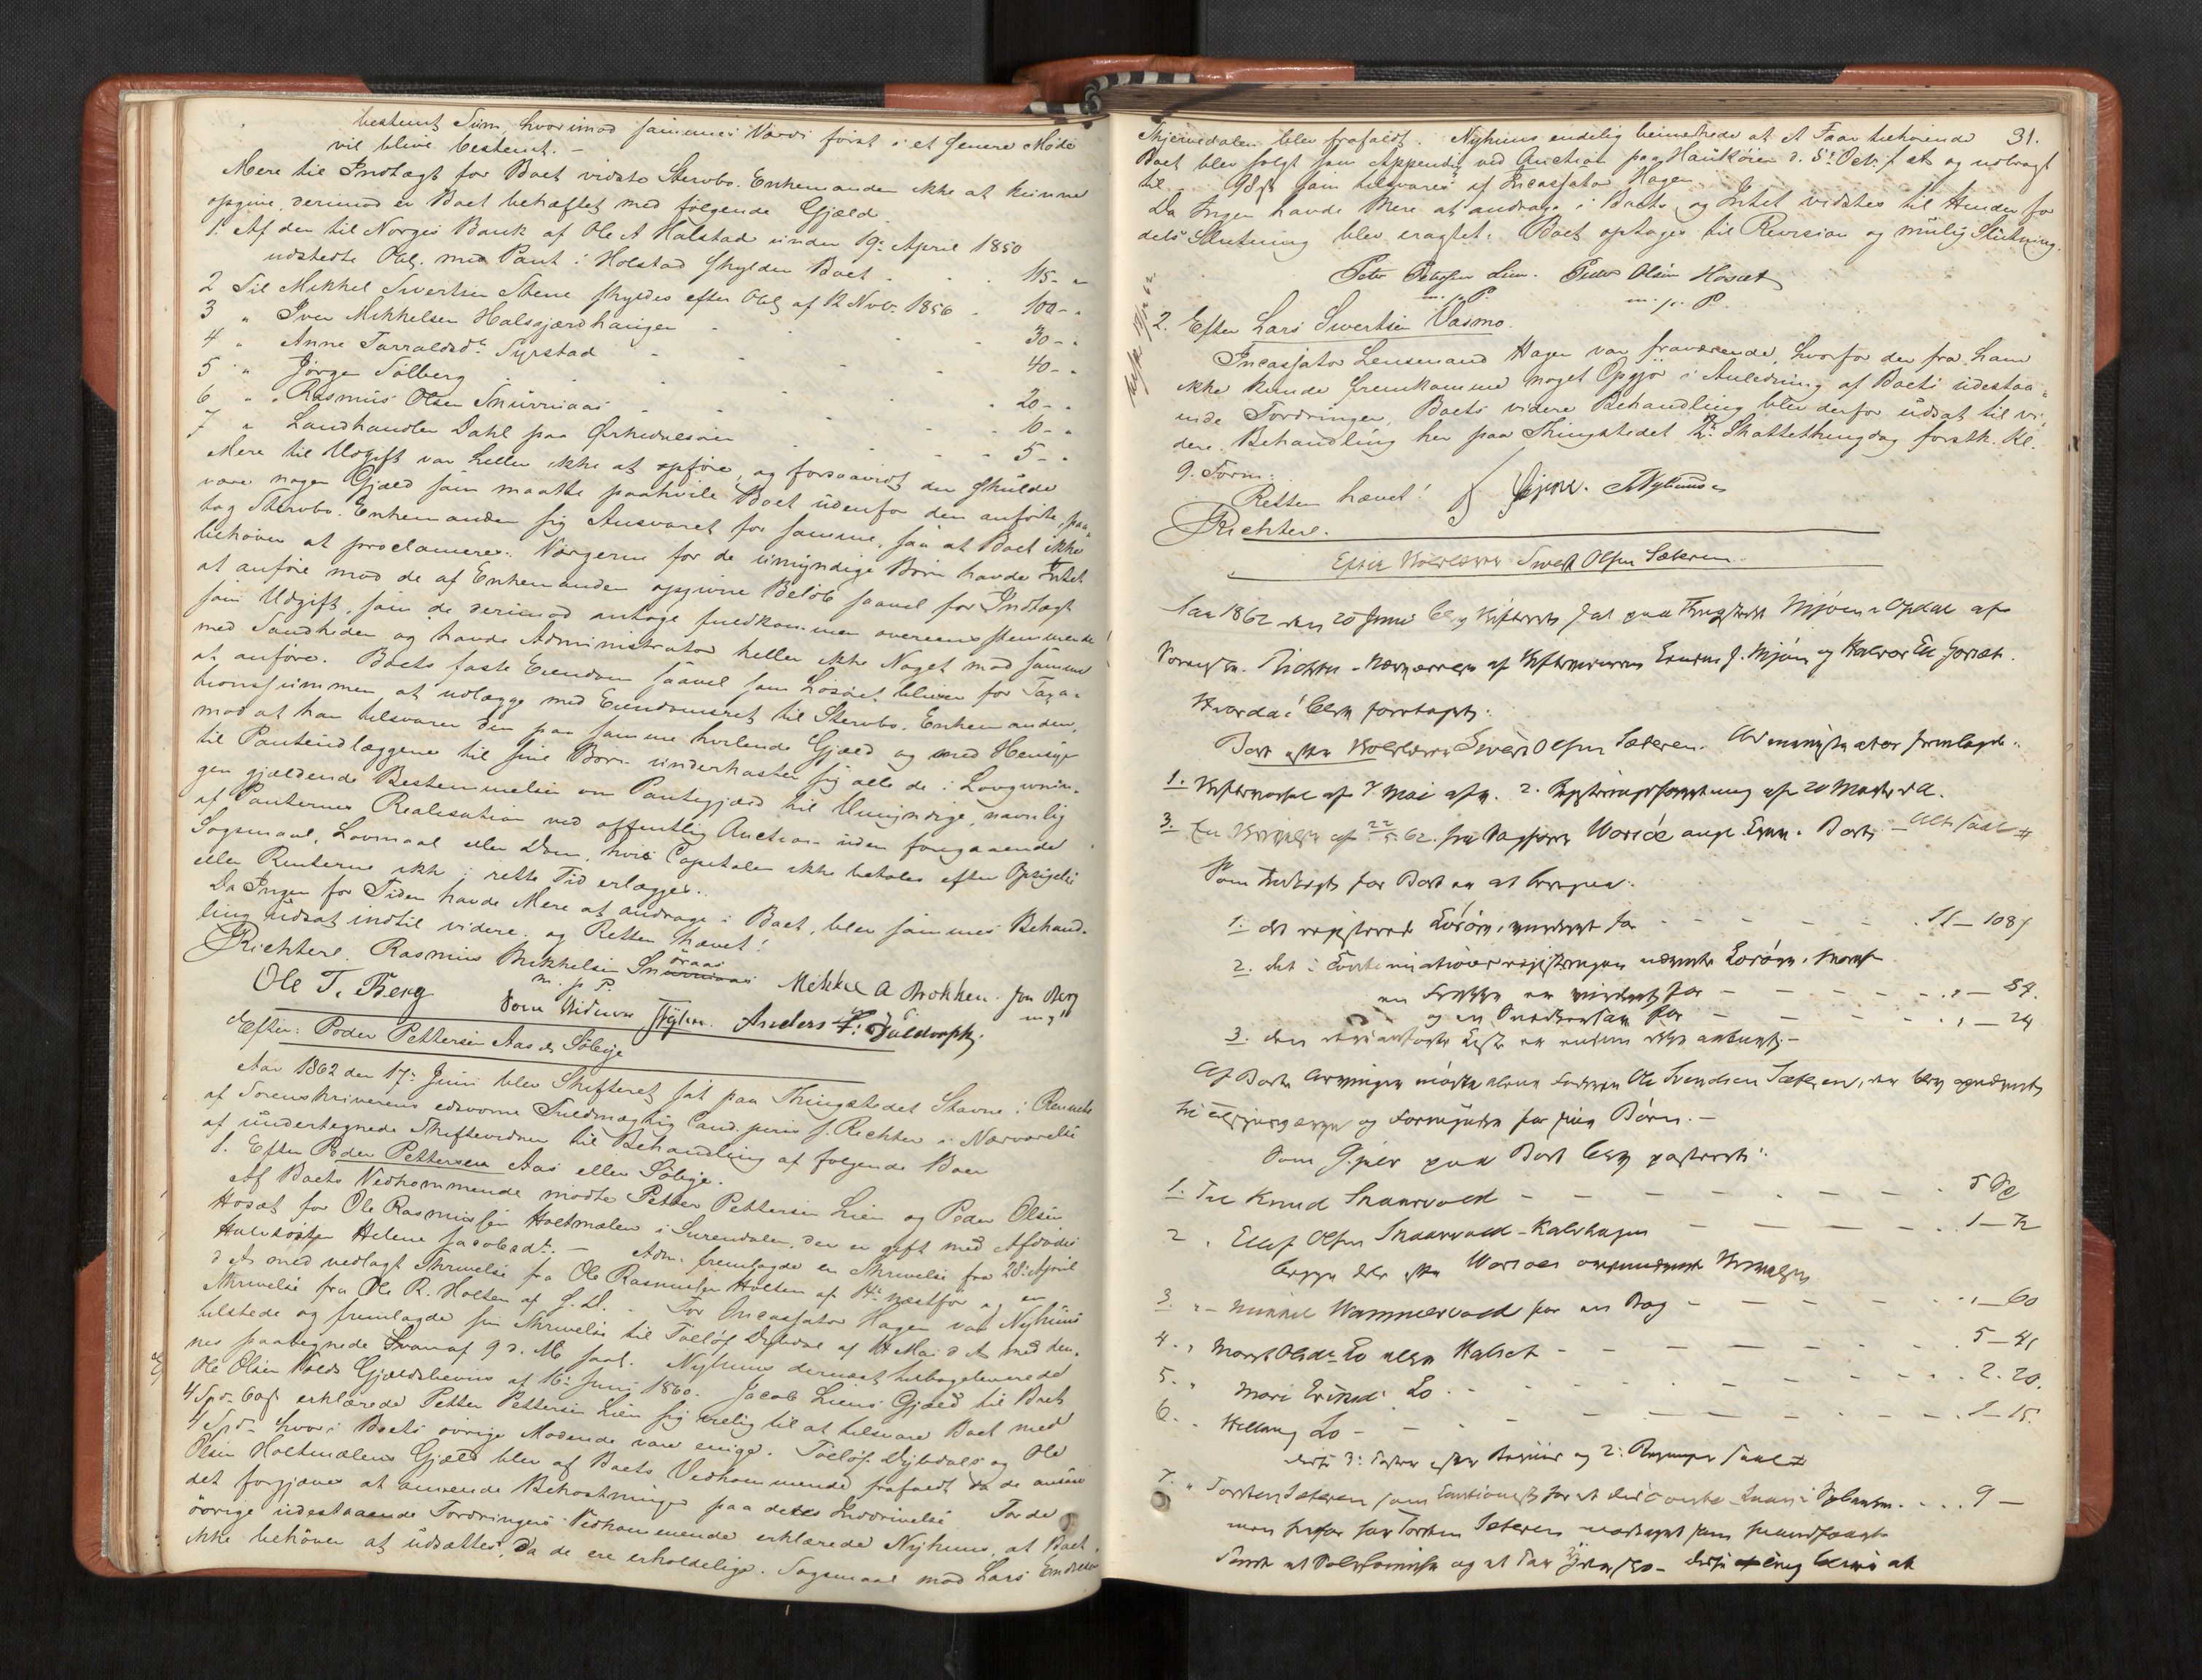 bestemt Sum, hvorimod sammes Værdi först i et senere Möde
vil blive bestemt. -
Mere til Indtægt for Boet vidste Stervbo. Enkemanden ikke at kunne
opgive, derimod er Boet behæftet med fölgende Gjæld
1. Af den til Norges Bank af Ole A Halstad under 19: April 1850
udstedte Obl. med Pant i Holstad skylder Boet - 115 - "
2 Til Mikkel Sivertsen Stene skyldes efter Obl af 12 Novbr. 1856 - 100 - "
3 " Iver Mikkelsen Halsgjærdhaugen - 30 - "
4 " Anne Tarraldsdtr Syrstad - 40 - "
5 " Jörgen Solberg - 20 - "
6 " Rasmus Olsen Snurruaas - 10 - "
7 " Landhandler Dahl paa Örkedalsören - 5 - "
Mere til Udgift var heller ikke at opföre, og forsaavidt der skulde
være nogen Gjæld som maatte paahvile Boet udenfor den anförte, paa-
tog Stervbo. Enkemanden sig Ansvaret for samme, saa at Boet ikke
behöver at proclameres. Værgerne for de umyndige Börn havde Intet
at anföre mod de af Enkemanden opgivne Belöb saavel for Indtægt
som Udgift, som de derimod antoge fuldkommen overensstemmende
med Sandheden og havde Administrator heller ikke Noget mod samme
at anföre. Boets faste Eiendom saavel som Lösöret bliver for Taxa-
tionssummen at udlægge med Eiendomsret til Stervbo. Enkemanden,
mod at han tilsvarer den paa samme hvilende Gjæld og med Hensyn
til Panteudlæggene til sine Börn underkaster sig alle de i Lovgivnin-
gen gjældende Bestemmelser om Pantegjæld til Umyndige, navnlig
af Panternes Realisation ved offentlig Auction uden foregaaende
Sogsmaal, Lovmaal eller Dom, hvis Capitalen ikke betales efter Opsigelse
eller Renterne ikke i rette Tid erlægges.
Da Ingen for Tiden havde Mere at andrage i Boet, blev sammes Behand-
ling udsat indtil videre, og Retten hævet!
Richter. Rasmus Mikkelsen Snöraas Mikkel A Brokken. Jon Berg
m. p. P.
Ole T. Berg Anders
Efter: Peder Pettersen Aas el Sölige
Aar 1862 den 17: Juni blev Skifteret sat paa Thingstedet Stavne i Rennebo
af Sorenskriverens edsvorne Fuldmægtig Cand. juris J. Richter i Nærværelse
af undertegnede Skiftevidner til Behandling af fölgende Boer
1. Efter Peder Pettersen Aas eller Sölige.
Af Boets Vedkommende mödte Petter Pettersen Lien og Peder Olsen
Hosæt for Ole Rasmussen Holtmælen i Surendalen, der er gift med Afdödes
Halvsöster Helene Jacobsdtr. - Adm. fremlagde en Skrivelse fra 28: April
d. A. med vedlagt Skrivelse fra Ole Rasmussen Holten af næstfør og en
Skrivelse fra Ole R. Holten af S. D. - For Incassator Hagen var Nyhuus
tilstede og fremlagde sin Skrivelse til Toelöf Dybdal af 14 Mai d A med den-
nes paategnede Svar af 9 d. M. saat. Nyhuus dernæst tilbageleverede
Ole Olsen Volds Gjældsbevis af 16: Juni 1860. Jacob Liens Gjæld til Boet
4 Spd. 60 ſ erklærede Petter Pettersen Lien sig villig til at tilsvare Boet med
4 Spd. hvori Boets övrige Mödende vare enige. Toelöf Dybdals og Ole
Olsen Holtmælens Gjæld blev af Boets Vedkommende frafaldt da de ansaae
det forgjæves at anvende Bekostninger paa dettes Inddrivelse. For de
övrige udestaaende Fordringers Vedkommende erklærede Nyhuus, at Boet
ikke behöver at udsættes, da de ere erholdelige. Sogsmaal mod Lars Endresen
31.
Skjervedalen blev frafaldt. Nyhuus endelig bemærkede at A Faar tilhörende
Boet blev solgt som Appendix ved Auction paa Haukören d. 5: Octr. f. A. og udbragt
til som tilsvares af Incassator Hagen
Da Ingen havde Mere at andrage i Boet, og Intet vidstes til Hinder for
dets Slutning blev eragtet: Boet optages til Revision og mulig Slutning.
Peter Petersen Lien. Peder Olsen Hosæt
m. p. P. m. p. P.
2. Efter Lars Sivertsen Vasmo.
Incassator Lensmand Hagen var fraværende, hvorfor der fra ham
ikke kunde fremkomme noget Opgjör i Anledning af Boets udestaa-
ende Fordringer. Boets videre Behandling blev derfor udsat til vi-
dere Behandling her paa Thingstedet 2: Skattethingsdag förstk. Kl.
9. Form:
Retten hævet!
Richter. Nyhuus
Efter Sivert Olsen Sæteren.
Aar 1862 den 20 Juni blev Skifteret sat paa Thingstedet Mjøen i Opdal af
Sorenskr. Richter i Nærværelse af Skiftevidnerne J. Mjøen og Halvor
Hvorda! blev foretaget:
Boet efter Sivert Olsen Sæteren. Administrator fremlagde:
1. af 7 Mai 2. Registreringsforretning af 20 Marts d A.
3. En Skrivelse af 22/5 62. fra angd.
Som Indtægt for Boet er at beregne:
1. det registrerede Lösöre, vurderet for - 11 - 108 ſ
2. det i Continuationsregistreringen nævnte Lösöre, hvoraf
en vurderet for - " - 84.
og en for - " - 24
3. den
Af Boets Arvinger mödte alene Faderen Ole Svendsen Sæteren, der blev opnævnt
til og Formynder for sine Börn. -
Som Gjæld paa Boet blev passeret:
1. Til Knud Snaarvold - 5 Sp
2 . Ellef Olsen Snaarvold - Kalvhagen - 1 - 72
begge dele efter Skrivelse
3. " - Mikkel Hammervold for en Bog - " - 60
4. " Marit Olsdr. Lo eller Halset - 5 - 41
5. " Mari Eriksd. Lo - 2 - 20.
6. " Lo - 1 - 15.
disse 3: Poster efter og 2:
7. " Torsten Sæteren som Cautionist for et Laan i - 9 -
men herfor har Torsten Sæteren